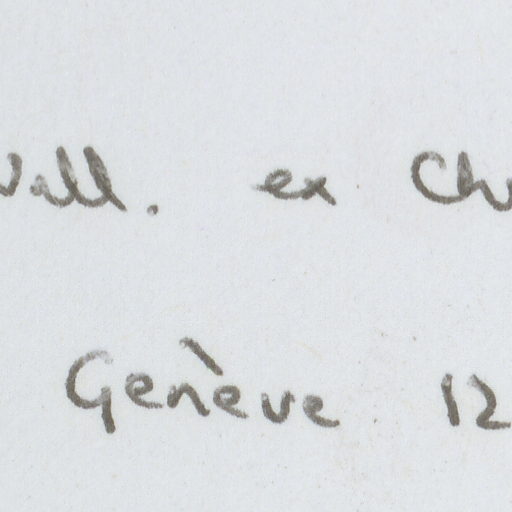 Wall. ex
Genève 12